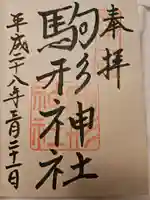 奉拝
駒形神社
平成二十八年三月二十一日